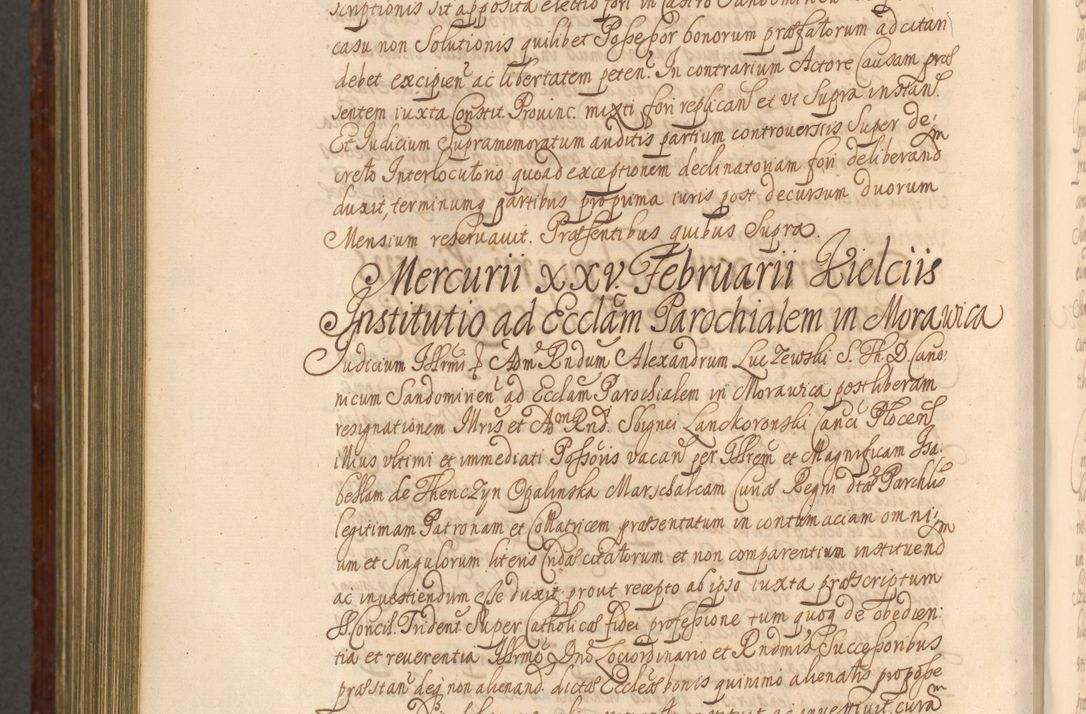 scriptionis sit apposita electio fori in Castro Sandomirien
casu non Solutionis quilibet Possessor bonorum præfatorum ad citari
debet excipien ac libertatem peten. In contrarium Actore Causam præs
sentem iuxta Constit. Provinc. mixti fori replican et vt Supra instan.
Et Iudicium Supramemoratum auditis partium controversiis Super de:
creto Interlocutorio quoad exceptionem declinatoriam fori deliberand
duxit, terminumq partibus pro prima iuris post decursum duorum
Mensium reservavit. Præsentibus quibus Supra.
Mercurii XXV. Februarii Kielciis
Institutio ad Ecclam Parochialem in Morawica
Iudicium Illrmi Adm Rndum Alexandrum Luczewski S. Th. D. Cano:
nicum Sandomirien ad Ecclam Parochialem in Morawica post liberam
resignationem Illris et Adm Rnd. Sbignei Lanckoronski Canci Plocen
illius vltimi et immediati Possoris vacan per Illrem et Magnificam Isa:
bellam de Thenczyn Opalinska Marschalcam Curiæ Regni dtæ Parchlis
legitimam Patronam et Collatricem præsentatum in contumaciam omni:
um et Singulorum literis Cridæ citatorum et non comparentium instituend
ac investiendum esse duxit prout recepto ab ipso iuxta præscriptum
S. Concil. Trident Super Catholicæ fidei professione tum quoq de obedien:
tia et reverentia Illrmo Dno Loci ordinario et Rndmis Successoribus
præstan deq non alienand. dictæ Ecclæ bonis quinimo alienatis pro posse